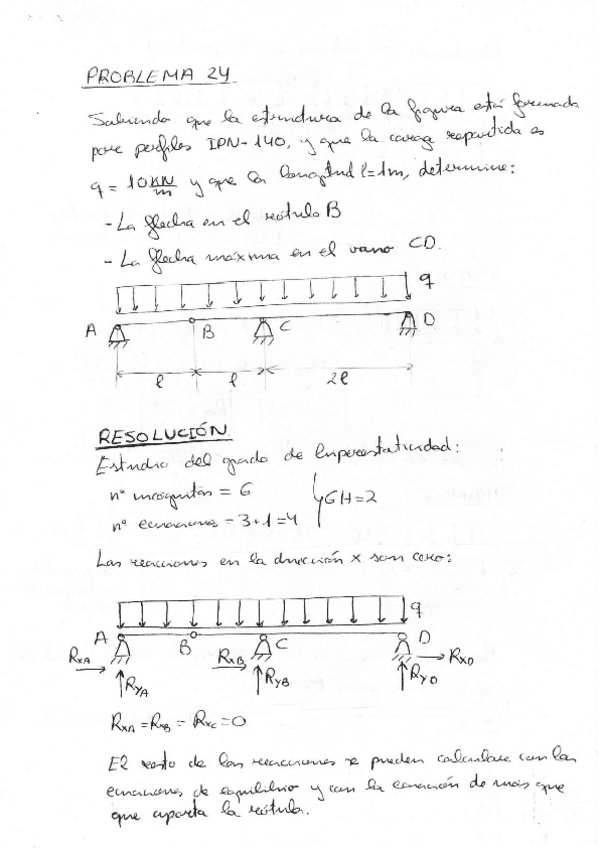 PROBLEMA 24
Sabiendo que la estructura de la figura está formada
por perfiles IPN-140, y que la carga repartida es
q = 10 KN/m y que la longitud l = 1m, determine:
- La flecha en el rótula B
- La flecha máxima en el vano CD.
q
A B C D
l l 2l
RESOLUCIÓN
Estudio del grado de hiperestaticidad:
nº incógnitas = 6
GH=2
nº ecuaciones = 3+1=4
Las reacciones en la dirección x son cero:
q
A B C D
RxA RxB RxD
RyA RyB RyD
RxA = RxB = RxC = 0
El resto de las reacciones se pueden calcular con las
ecuaciones de equilibrio y con la ecuación de más que
que aporta la rótula.